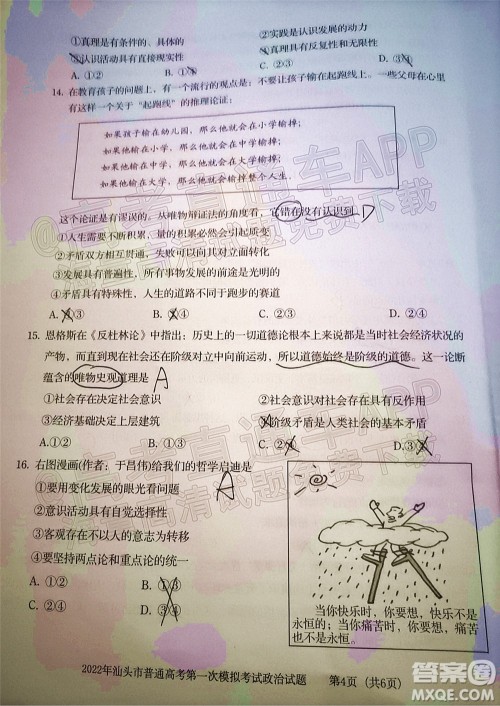 ①真理是有条件的、具体的 ②实践是认识发展的动力
③认识活动具有直接现实性 ④真理具有反复性和无限性
A. ①② B. ①④ C. ②③ D. ③④
14. 在教育孩子的问题上，有一个流行的观点是：不要让孩子输在起跑线上。一些父母在心里
有这样一个关于“起跑线”的推理论证：
如果孩子输在幼儿园，那么他就会在小学输掉；
如果他输在小学，那么他就会在中学输掉；
如果他输在中学，那么他就会在大学输掉；
如果他输在大学，那么他就会输掉整个人生。
这个论证是有谬误的。从唯物辩证法的角度看，它错在没有认识到 D
①人生需要不断积累、量的积累必然会引起质变
②矛盾双方相互贯通、劣势也可以向其对立面转化
③发展具有普遍性，所有事物发展的前途是光明的
④矛盾具有特殊性，人生的道路不同于跑步的赛道
A. ①③ B. ①④ C. ②③ D. ②④
15. 恩格斯在《反杜林论》中指出：历史上的一切道德论根本上来说都是当时社会经济状况的
产物，而直到现在社会还在阶级对立中向前运动，所以道德始终是阶级的道德。这一论断
蕴含的唯物史观道理是 A
①社会存在决定社会意识 ②社会意识对社会存在具有反作用
③经济基础决定上层建筑 ④阶级矛盾是人类社会的基本矛盾
A. ①③ B. ①④ C. ②③ D. ②④
16. 右图漫画(作者：于昌伟)给我们的哲学启迪是 A
①要用变化发展的眼光看问题
②意识活动具有自觉选择性
③客观存在不以人的意志为转移
④要坚持两点论和重点论的统一
A. ①② B. ①③
C. ②④ D. ③④
当你快乐时，你要想，快乐不是
永恒的；当你痛苦时，你要想，
痛苦也不是永恒的。
2022年汕头市普通高考第一次模拟考试政治试题 第4页 （共6页）
答案圈
MXQE.COM